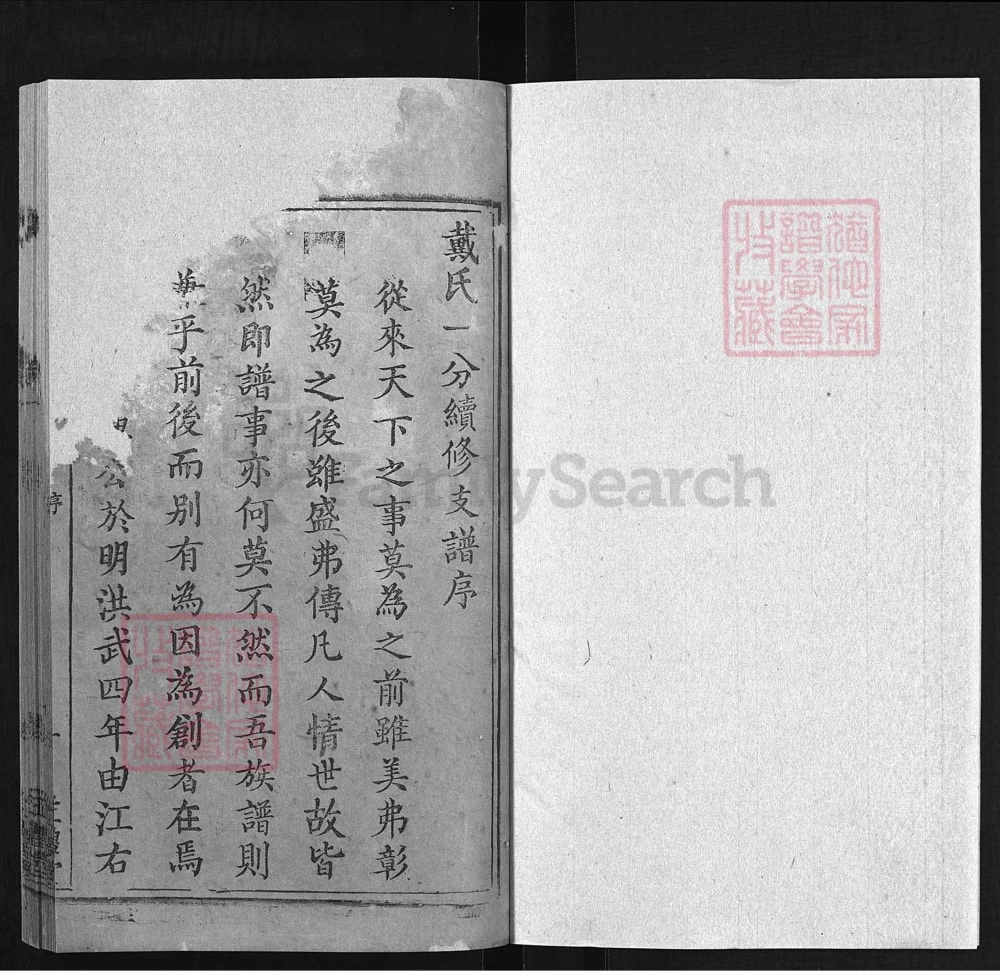 戴氏一分續修支譜序
從來天下之事莫為之前雖美弗彰
莫為之後雖盛弗傳凡人情世故皆
然即譜事亦何莫不然而吾族譜則
乎前後而别有為因為創者在焉
公於明洪武四年由江右
序
FamilySearch
譜學會
藏